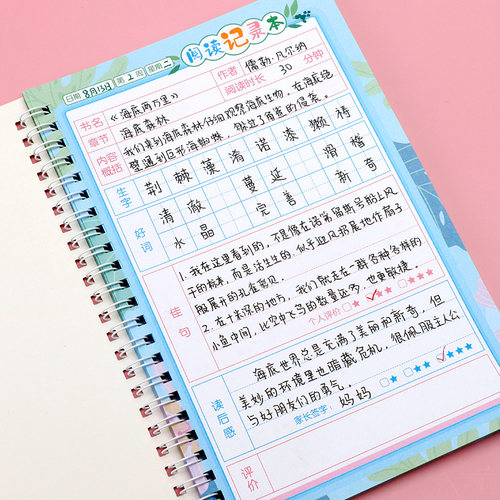 阅读记录本
日期 8月13日 第 2 周 星期 二
书名 《海底两万里》 作者 儒勒·凡尔纳
章节 海底森林 阅读时长 30 分钟
内容概括 我们来到海底森林仔细观察海底生物,在海底绝
壁遇到巨形海蜘蛛,躲过了鲨鱼的侵袭。
生字 荆 棘 藻 淆 诺 漆 獭 犄
好词 清澈 蔓延 滑稽
水晶 完善 新奇
佳句 1. 我在这里看到的,不是像在诺第留斯号船上风
干的标本,而是活生生的,似乎迎风招展地作扇子
般展开的孔雀扇贝。
2. 在十米深的地方,我们就走在一群各种各样的
小鱼中间,比空中飞鸟的数量还多,也更敏捷。
个人评价 ★ ✓★★ ★★★
读后感 海底世界总是充满了美丽和新奇,但
美妙的环境里也暗藏危机,很佩服主人公
与好朋友们的勇气。
家长签字: 妈妈 ★ ★★ ✓★★★
评价